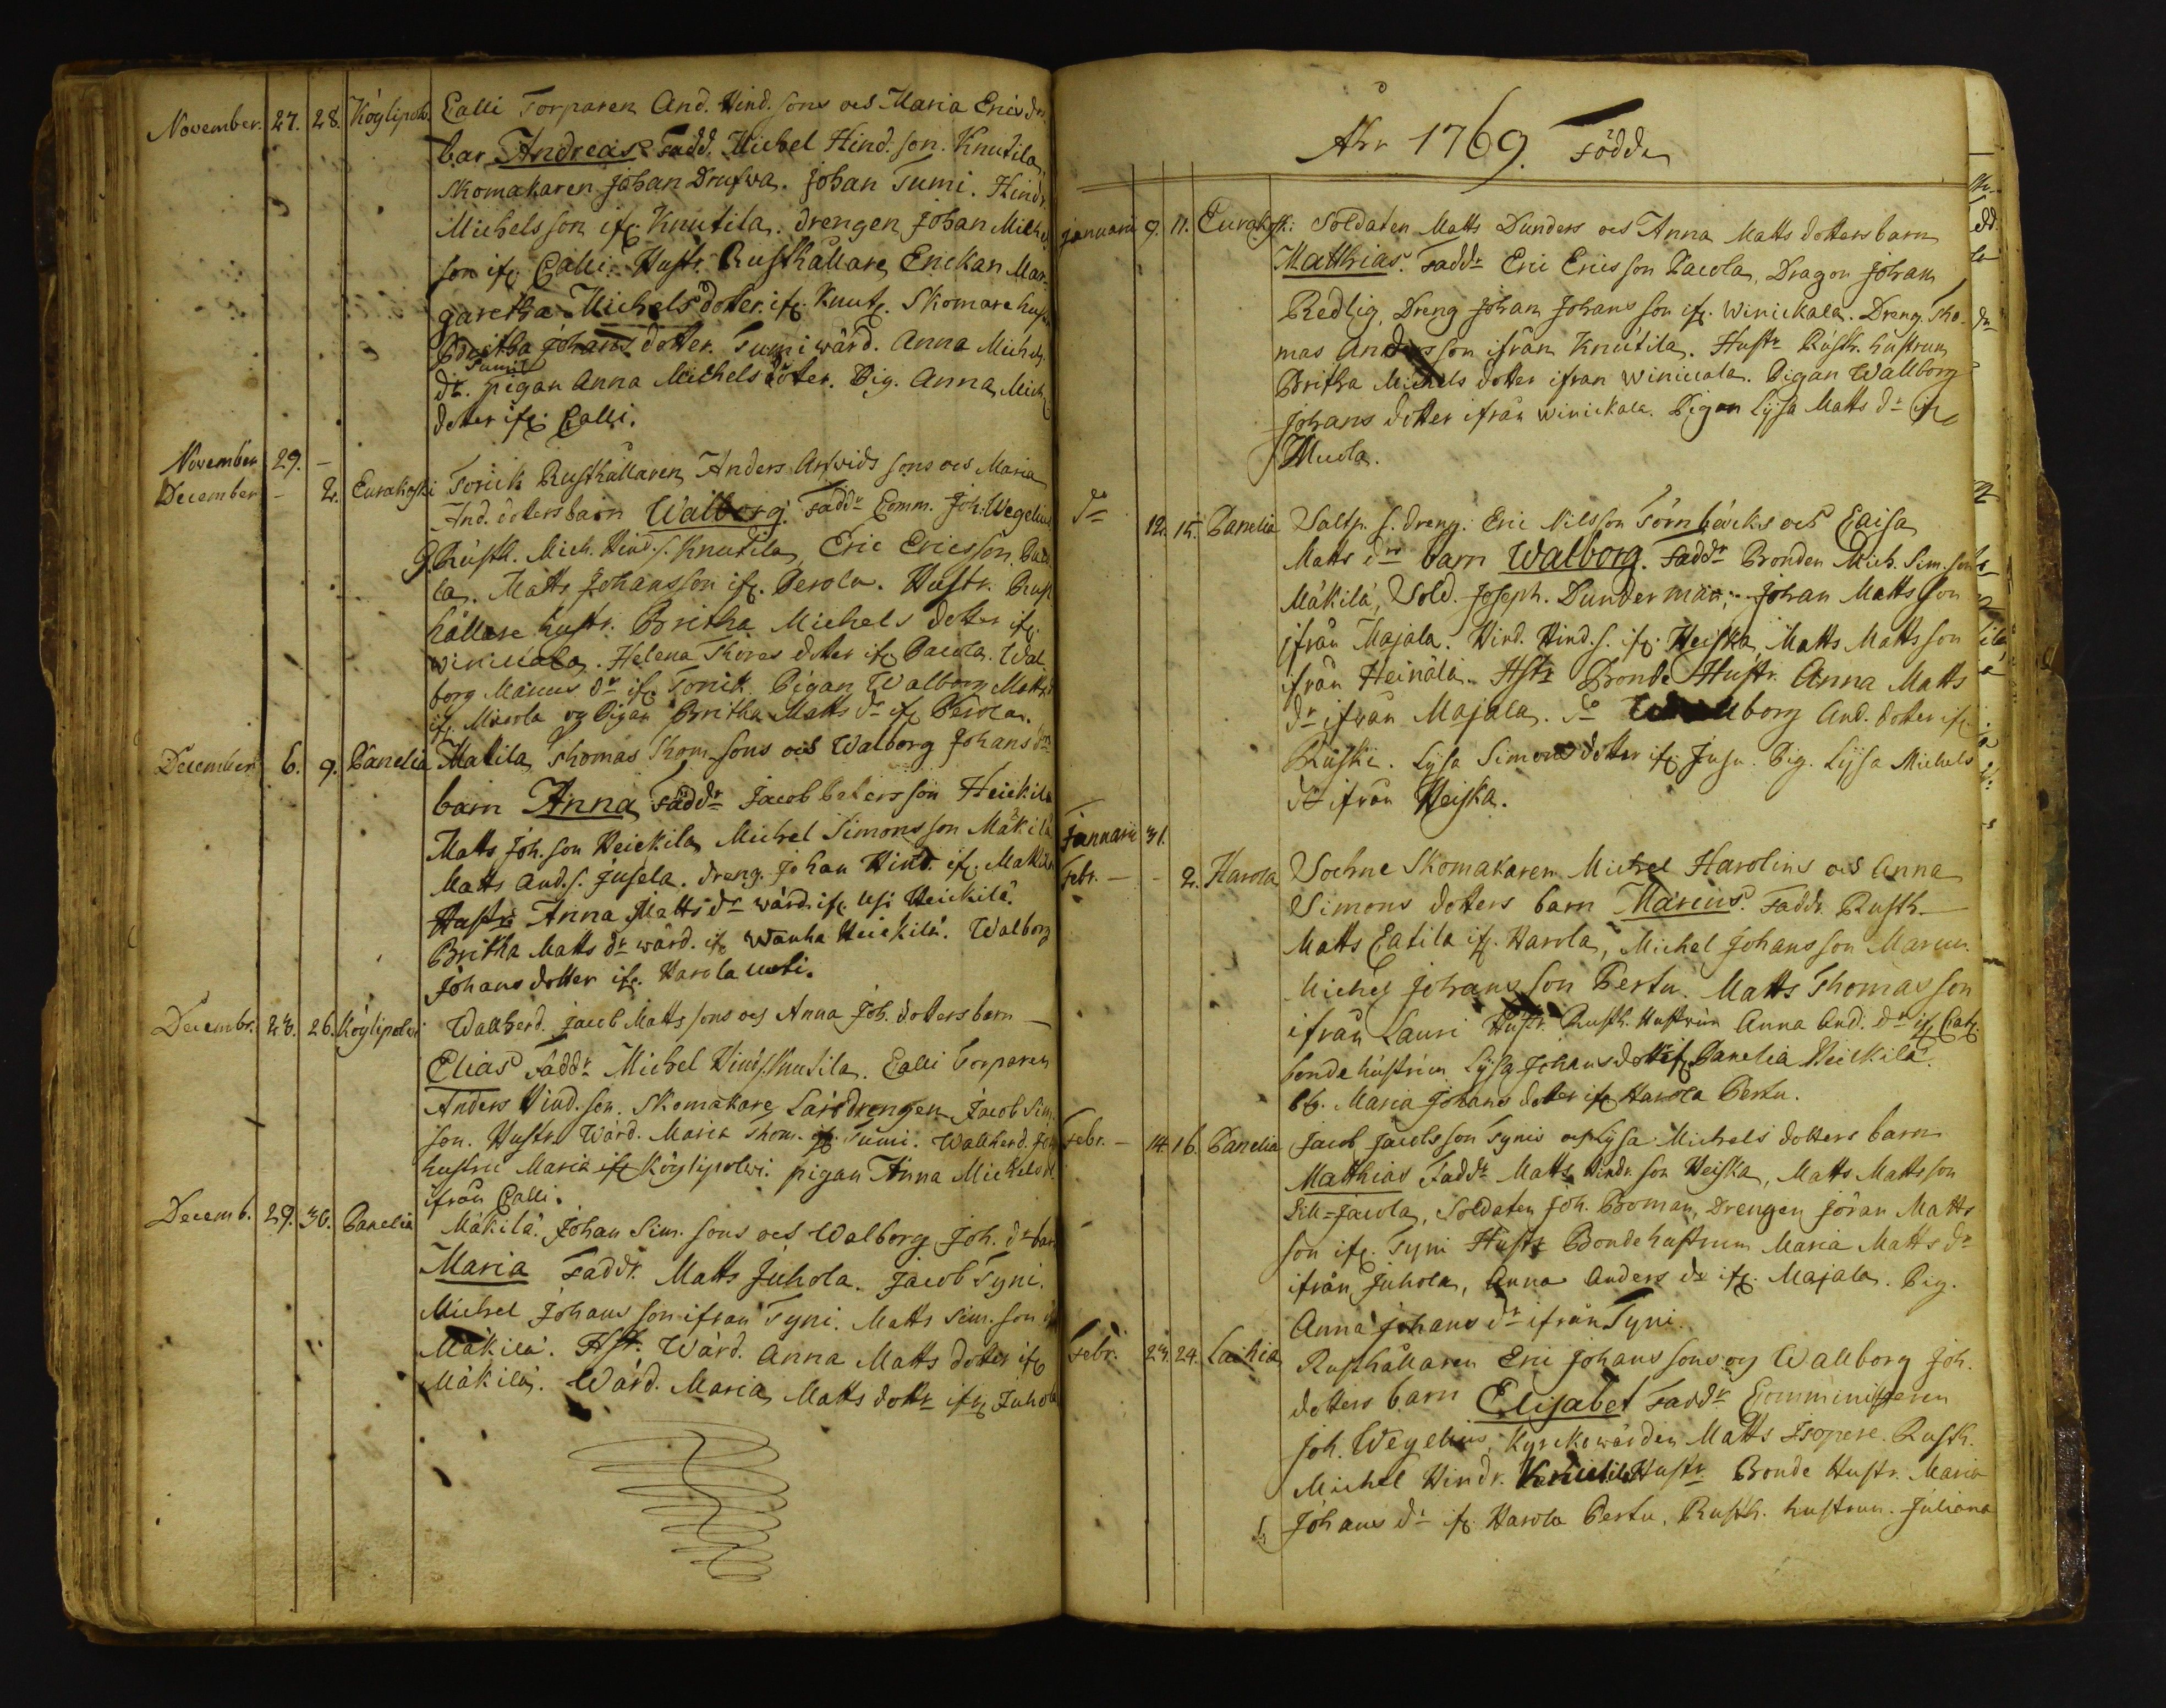 November. 27. 28. Köylipolv. Calli Torparen And. Hind. sons och Maria Erics dr.
bar Andreas Fadd. Michel Hind. son. Knutila
Skomakaren Johan Drufwa. Johan Tumi. Hindr.
Michelsson ifr. Knutila. drengen Johan Michels
son ifr. Calli. Hustr. Rusthållare Enckan Mar-
garetha Michels dotter. ifr. Knut. Skomare hustr
Britha Johans dotter. Tumi wärd. Anna Michels
Tumi
dr. pigan Anna Michels dotter. Pig. Anna Mich.
dotter ifr. Calli.
November 29. –
December – 2. Eurakoski Torick Rusthållaren Anders Arfvids sons och Maria
And. dotters barn Walborg. Faddr Comm. Joh. Wegelius
Rusth. Mich. Hind. s. Knutila, Eric Ericsson. Paco
la. Matts Johansson ifr. Perola. Hustr. Rust
hållare hustr. Britha Michels dotter ifr.
winickala. Helena Thores dotter ifr Pacola. Wal
borg Marcus dr ifr. Torick. Pigan Walborg Matts d
ifr. Micola og Pigan Britha Matts dr ifr Perola.
December 6. 9. Panelia Matila Thomas Thom. sons och Walborg Johans drs
barn Anna Faddr Jacob Petersson Heickila
Matts Joh. son Heickila Michel Simonsson Mäkilä
Matts And. s. Jusela. dreng. Johan Hind. ifr. Mäkilä
Hustr. Anna Matts dr wärd. ifr. Usi Heickilä.
Britha Matts dr wärd. ifr Wanha Heickilä. Walborg
Johans dotter ifr. Harola
Decembr. 23. 26. Köylipolvi Wallherd. Jacob Matts sons och Anna Joh. dotters barn –
Elias Faddr Michel Hind. s. Knutila. Calli Torparen
Anders Hind. son. Skomakare Läredrengen Jacob Sim.
son. Hustr. Wärd. Maria Thom. ifr. Tumi. Wallherd.
hustru Maria ifr Köylipolwi. pigan Anna Michels d.
ifrån Calli.
Decemb. 29. 30. Panelia Mäkilä. Johan Sim. sons och Walborg Joh. dr barn
Maria Faddr. Matts Juhola. Jacob Tyni.
Michel Johans son ifrån Tyni. Matts Sim. son ifr
Mäkilä. Hstr. Wärd. Anna Matts dotter ifr
Mäkilä. Wärd. Maria Matts dottr ifr Juhola
Åhr 1769. Födde
januarii 9. 11. Eurakoski: Soldaten Matts Dunders och Anna Matts dotters barn
Matthias. Faddr Eric Ericsson Pacola, Dragon Johan
Redlig, Dreng Johan Johans son ifr. Winickala. Dreng. Tho-
mas Andersson ifrån Knutila. Hustr Rusth. hustrun
Britha Michels dotter ifrån winickala. Pigan Wallborg
Johans dotter ifrån winickala. Pigan Lysa Matts dr ifr
Micola.
do 12. 15. Panelia Saltp. s. dreng. Eric Nilsson Törnbäcks och Caisa
Matts drs barn Walborg. Faddr Bonden Mich. Sim. son
Mäkilä, Sold. Joseph. Dunderman, Johan Matts son
ifrån Majala. Hind. Hind. s. ifr. Heiska, Matts Mattsson
ifrån Heinälä. Hstr Bonde Hustr. Anna Matts
dr ifrån Majala. do Wallborg And. dotter ifr
Ruski. Lysa Simons dotter ifr Jusu. Pig. Lysa Michels
dr ifrån Heiska.
Januarii 31.
Febr. – – 2. Harola Sochne Skomakaren Michel Harolins och Anna
Simons dotters barn Marcus. Faddr. Rusth.
Matts Eatila ifr. Harola, Michel Johansson Marcu.
Michel Johans son Pertu. Matts Thomas son
ifrån Lauri Hustr. Rusth. Hustrun Anna And. dr ifr
bonde hustrun Lysa Johans dotter ifr Panelia Heickilä.
Maria Johans dotter ifr Harola Pertu.
Febr. – 14. 16. Panelia Jacob Jacobsson Tynis och Lysa Michels dotters barn
Matthias Faddr Matts Hindr. son Heiska, Matts Mattsson
Lill-Jacola, Soldaten Joh. Broman, Drengen Jöran Matts
son ifr. Tyni Hustr Bonde hustrun Maria Matts dr
ifrån Juhola, Anna Anders dr ifr. Majala. Pig.
Anna Johans dr ifrån Tyni.
Febr. 23. 24. Laihia Rusthållaren Eric Johans sons og Wallborg Joh.
dotters barn Elisabet Faddr Comministeren
Joh. Wegelius, Kyrckowärden Matts Isopere. Rusth.
Michel Hindr. Knutila Hustr Bonde Hustr. Maria
Johans dr ifr. Harola Pertu. Rusth. hustrun. Juliana